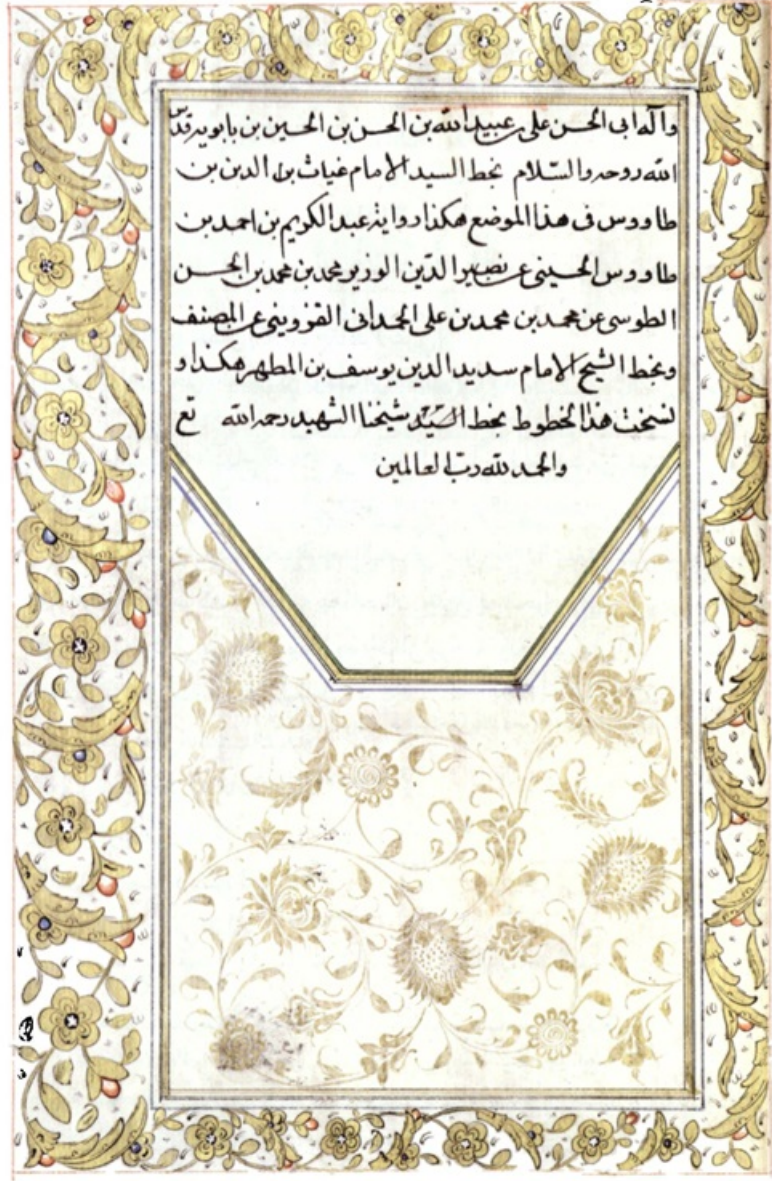 وآله ابى الحسن على بن عبيد الله بن الحسن بن الحسين بن بابويه قدس
الله روحه والسّلام بخط السيد الامام غياث بن الدين بن
طاووس فى هذا الموضع هكذا رواية عبد الكويم بن احمد بن
طاووس الحسينى عن نصير الدّين الوزير محمد بن محمد بن الحسن
الطوسى عن محمد بن محمد بن على الحمدانى القزوينى عن المصنف
وبخط الشيخ الامام سديد الدين يوسف بن المطهر هكذا و
نسخت هذا الخطوط بخط السيّد شيخنا الشهيد رحمه الله تع
والحمد لله ربّ العالمين